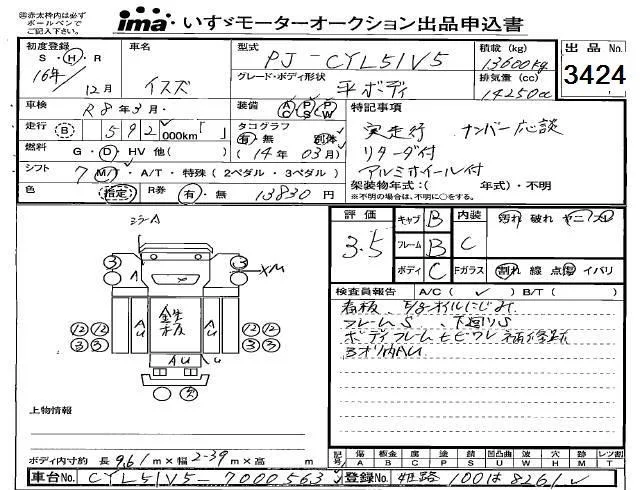 ㊟赤太枠内は必ず
ボールペンで
ご記入ください。
ima いすゞモーターオークション出品申込書
初度登録 S・H・R 16年 12月
車名 イスズ
型式 PJ-CYL51V5
グレード・ボディ形状 平ボディ
積載 (kg) 13600kg
排気量 (cc) 14250cc
出品 No. 3424
車検 R8年3月
装備 AC PS PW
特記事項
実走行 ナンバー応談
リターダ付
アルミホイール付
架装物年式：( 年式)・不明
※不明の場合は、不明に○をする。
走行 B 592,000km「 」
タコグラフ 有・無 別体
(14年 03月)
燃料 G・D・HV 他( )
シフト 7 M/T・A/T・特殊 (2ペダル・3ペダル)
色 指定
R券 有・無 13830円
評価 3.5
キャブ B 内装 C 汚れ 破れ ヤニ
フレーム B
ボディ C Fガラス 割れ 線 点傷 イバリ
検査員報告 A/C ( ✓ ) B/T ( )
フレームS、下廻りS
3オリ内AU
コラーA
3 A 3
XM
Au 板 Au
12 12 12 12
3 3 3 3
AU u
上物情報
ボディ内寸約 長 9.61 m×幅 2.39 m×高 m
記号 傷A 板金B 腐C 塗P 錆S 凹凸曲U 波W 穴H 跡M レンズ割T
車台No. CYL51V5-7000563
登録No. 姫路 100は8261